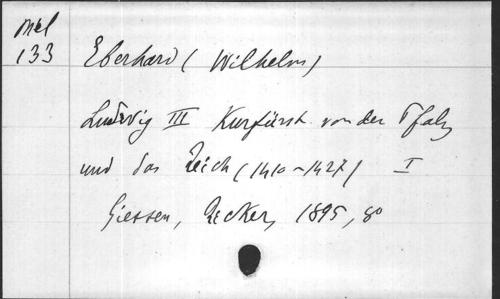 Mel
133
Eberhard (Wilhelm)
Ludwig III Kurfürst von der Pfalz
und das Reich (1410-1427) I
Giessen, Ricker, 1895, 8o